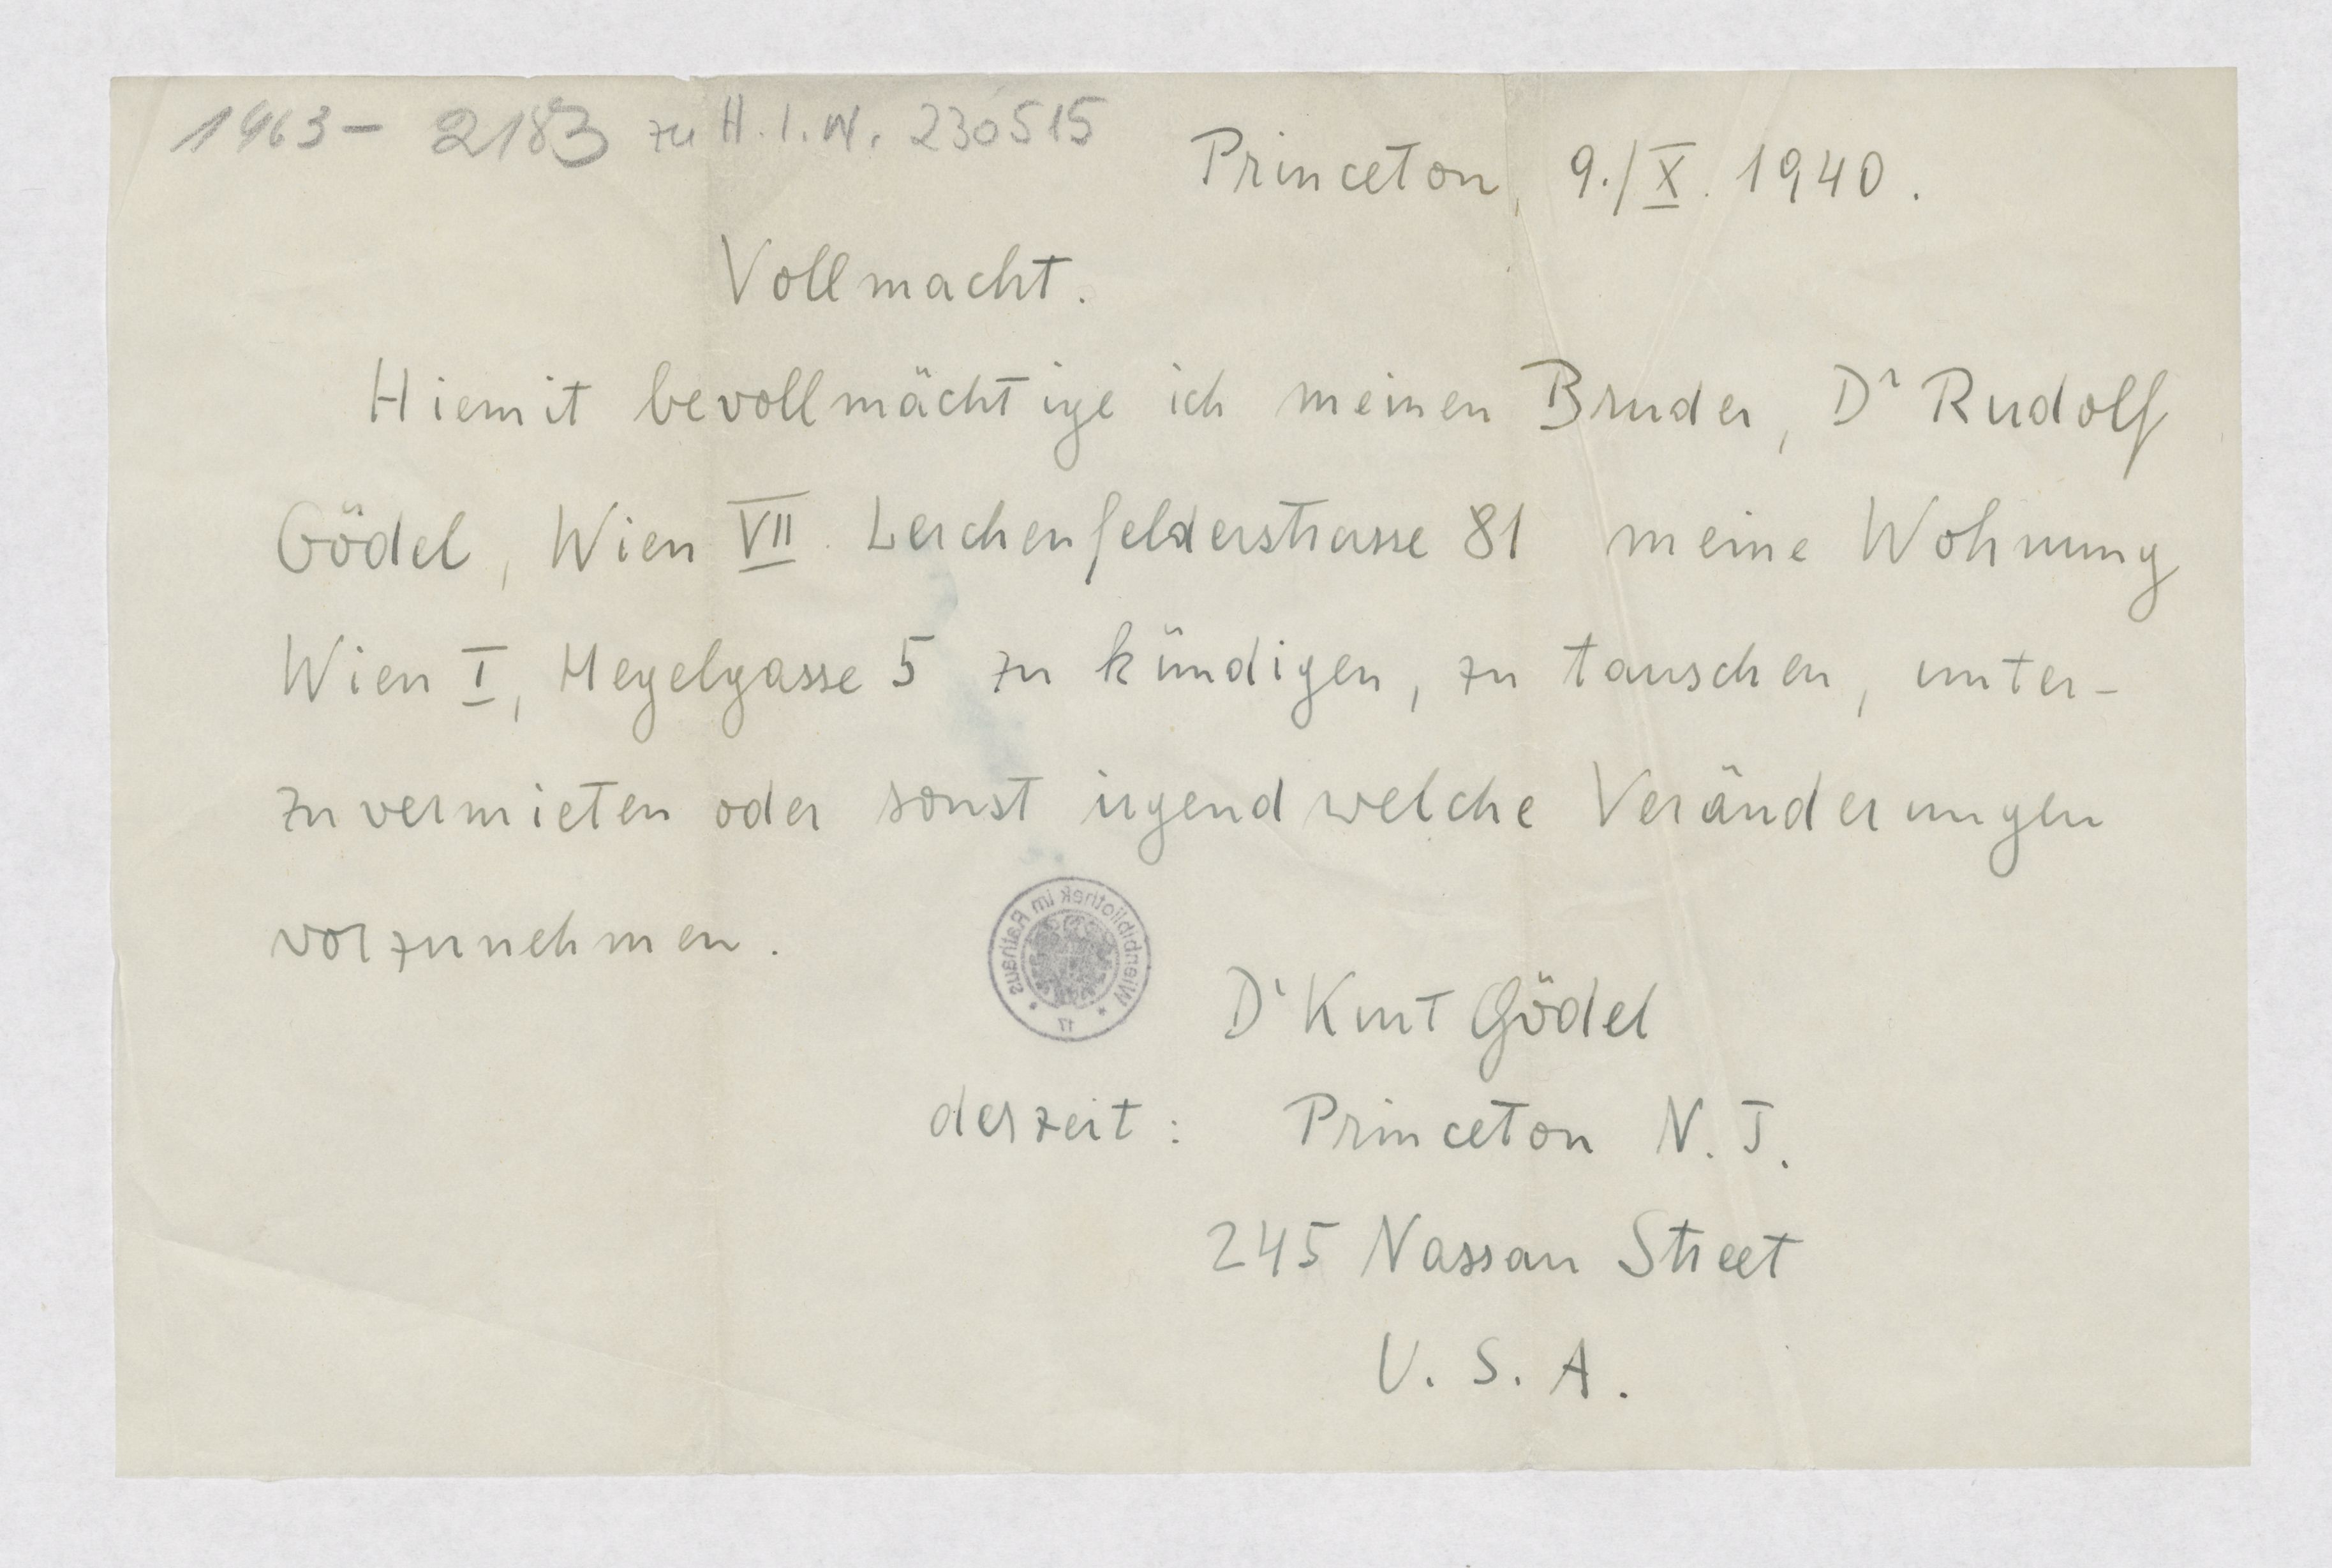 1963 - 2183 zu H. I. N. 230515
Princeton, 9./X. 1940.
Vollmacht.
Hiemit bevollmächtige ich meinen Bruder, Dr Rudolf
Gödel, Wien VII. Lerchenfelderstrasse 81 meine Wohnung
Wien I, Hegelgasse 5 zu kündigen, zu tauschen, unter-
zuvermieten oder sonst irgendwelche Veränderungen
vorzunehmen.
Wienbibliothek im Rathaus
17
Dr Kurt Gödel
derzeit: Princeton N. J.
245 Nassau Street
U. S. A.